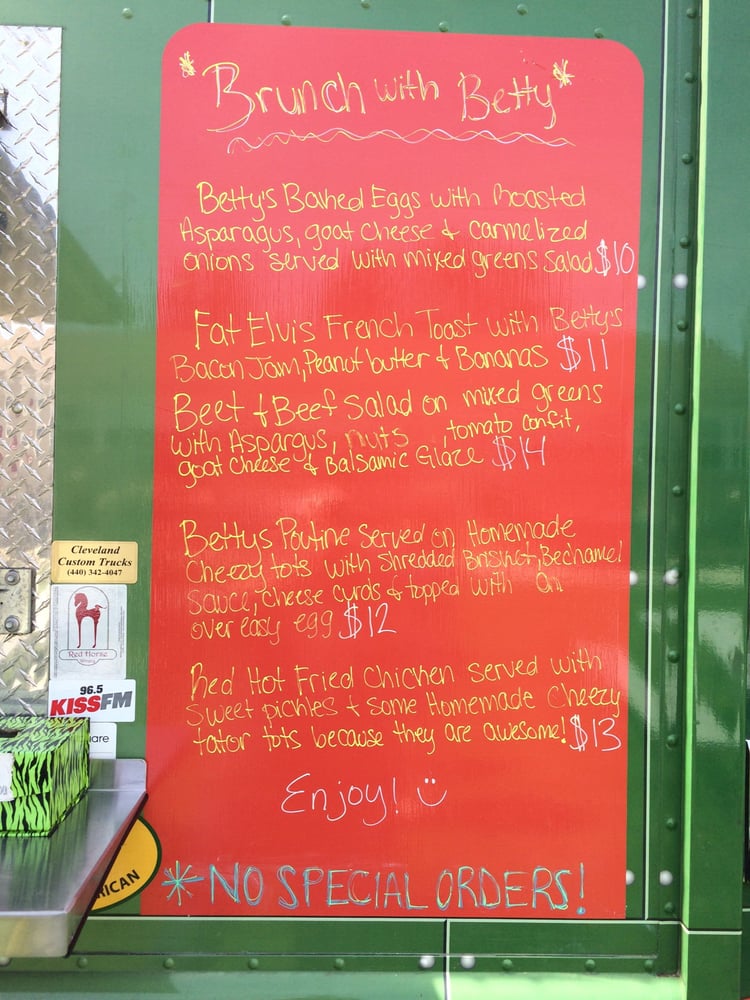 *Brunch with Betty*
Betty's Baked Eggs with Roasted
Asparagus, goat cheese & carmelized
onions served with mixed greens Salad $10
Fat Elvis French Toast with Betty's
Bacon Jam, Peanut butter & Bananas $11
Beet & Beef Salad on mixed greens
with Aspargus, nuts , tomato confit,
goat cheese & Balsamic Glaze $14
Bettys Poutine Served on Homemade
Cheezy tots with Shredded Brisket, Bechamel
Sauce, cheese curds & topped with an
over easy egg $12
Red Hot Fried Chicken served with
Sweet pickles & some Homemade Cheezy
tator tots because they are awesome! $13
Enjoy!
*NO SPECIAL ORDERS!
Cleveland
Custom Trucks
(440) 342-4047
Red Horse
96.5
KISSFM
uare
RICAN